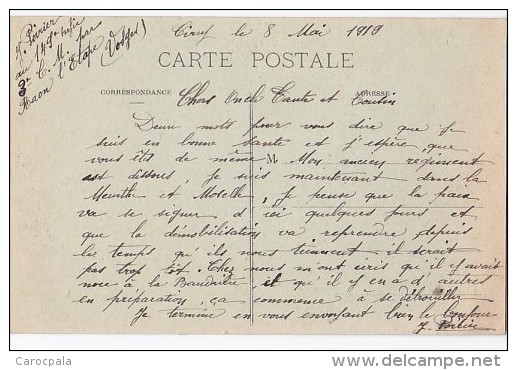 Cirey le 8 Mai 1919
J. Poirier
au 149e Infie
3e C. M. par
Raon l'Etape (Vosges)
CARTE POSTALE
CORRESPONDANCE
ADRESSE
Chers Oncle Tante et Cousin
Deux mots pour vous dire que je
suis en bonne santé et j'espère que
vous êtes de même. Mon ancien régiment
est dissous, je suis maintenant dans la
Meurthe et Moselle, je pense que la paix
va se signer d'ici quelques jours et
que la démobilisation va reprendre, depuis
le temps qu'ils nous tiennent il serait
pas trop tôt. Chez nous m'ont écris qu'il y avait
noce à la et qu'il y en a d'autres
en préparation, ça commence à se débrouiller
Je termine en vous envoyant bien le bonjour
J. Poirier
Carocpala
delcampe.net